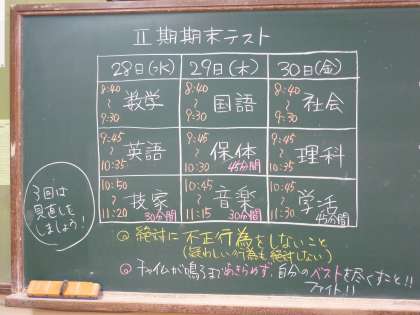 Ⅱ期期末テスト
28日(水) 29日(木) 30日(金)
8:40～9:30 数学 8:40～9:30 国語 8:40～9:30 社会
9:45～10:35 英語 9:45～10:30 保体 45分間 9:45～10:35 理科
10:50～11:20 技家 30分間 10:45～11:15 音楽 30分間 10:45～11:30 学活 45分間
3回は
見直しを
しましょう!
◎絶対に不正行為をしないこと
(疑わしい行為も絶対しない)
◎チャイムが鳴るまであきらめず、自分のベストを尽くすこと!!
ファイト!!